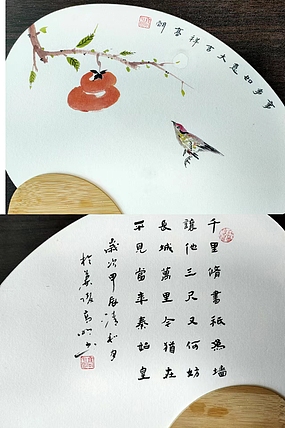 事事如意大吉祥
千里脩書秖為墙
讓他三尺又何妨
長城萬里今猶在
不見當年秦始皇
歲次甲辰清和月